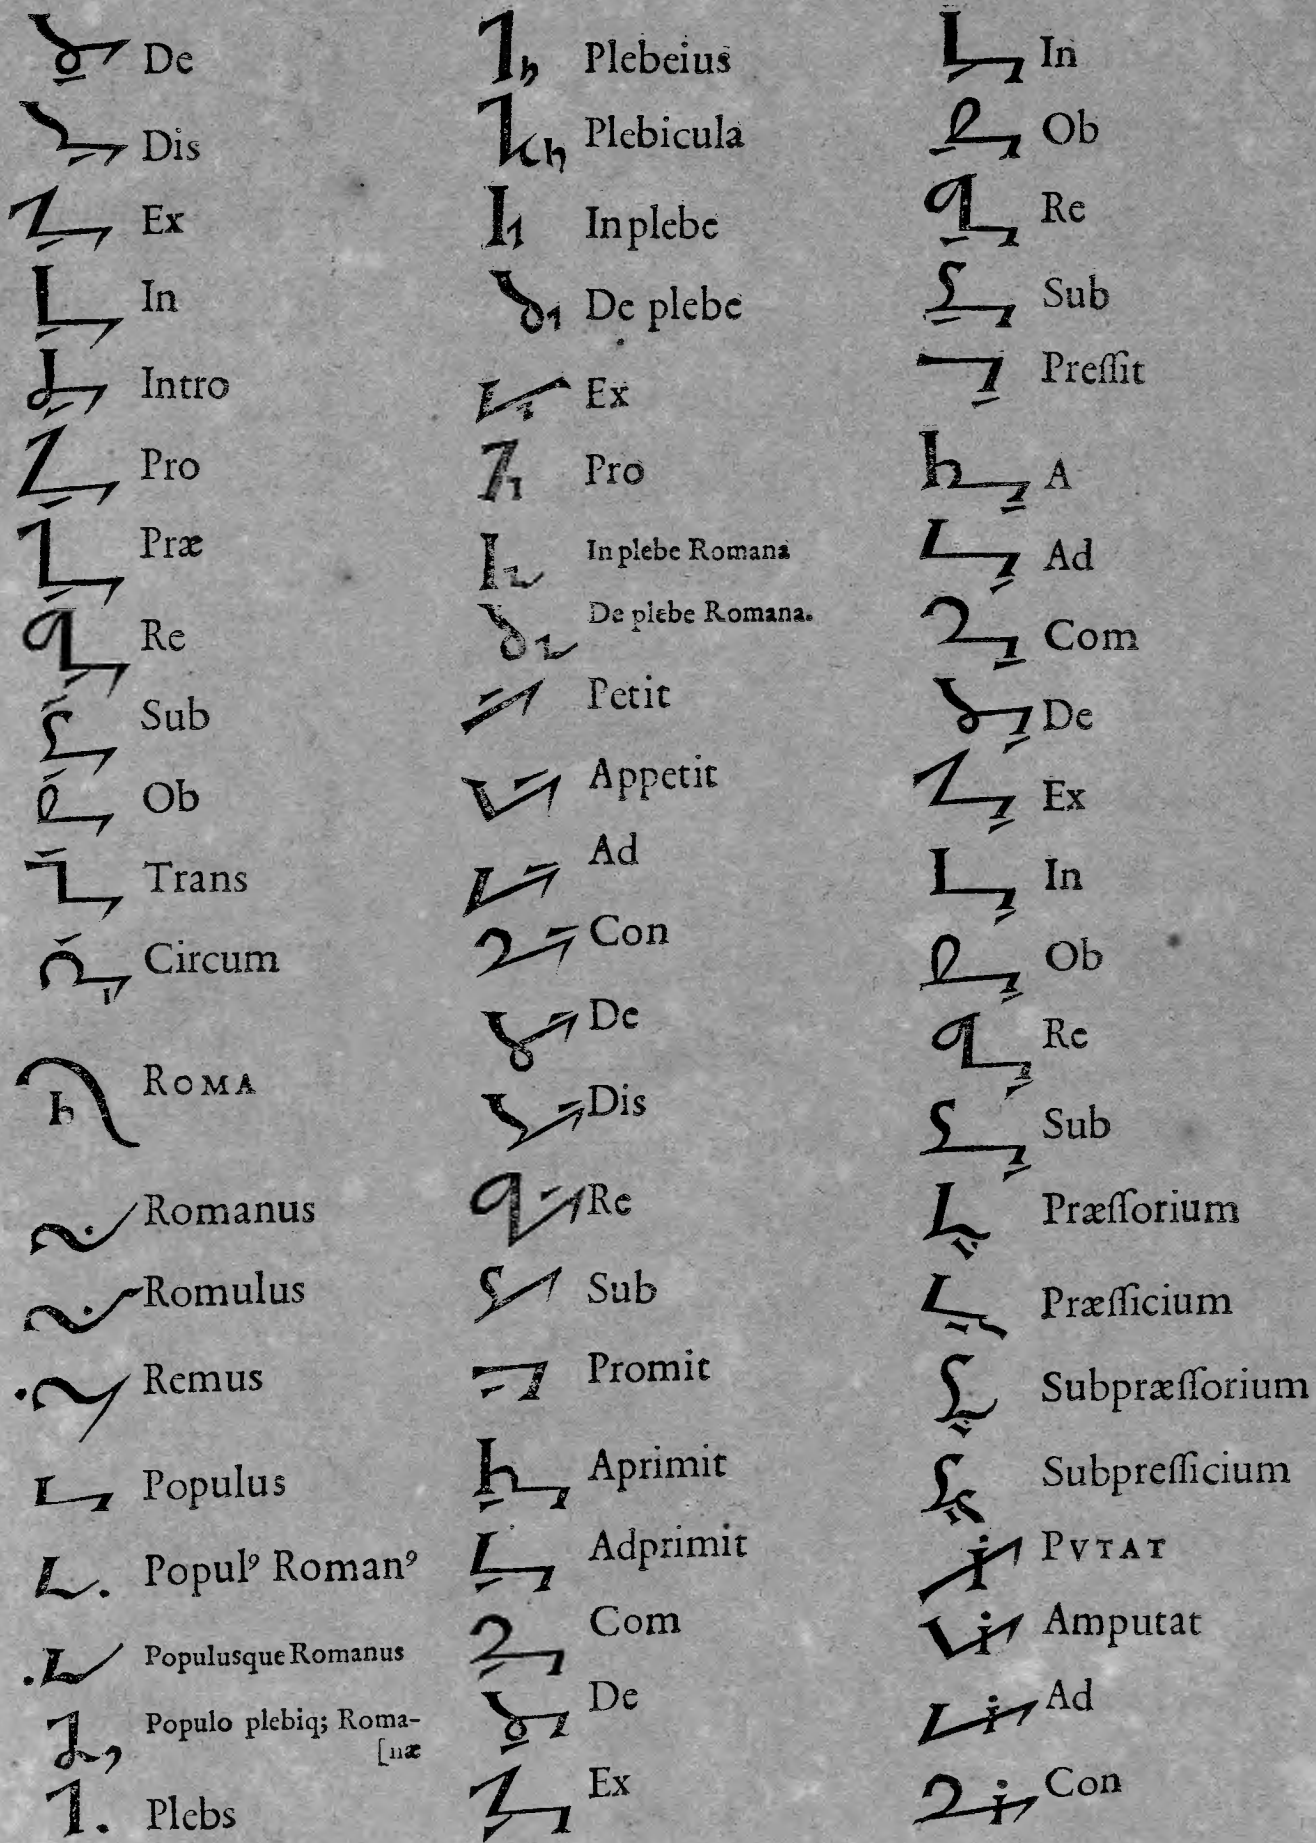 De
Dis
Ex
In
Intro
Pro
Præ
Re
Sub
Ob
Trans
Circum
ROMA
Romanus
Romulus
Remus
Populus
Populꝰ Romanꝰ
Populusque Romanus
Populo plebiq; Roma-
[næ
Plebs
Plebeius
Plebicula
In plebe
De plebe
Ex
Pro
In plebe Romana
De plebe Romana.
Petit
Appetit
Ad
Con
De
Dis
Re
Sub
Promit
Aprimit
Adprimit
Com
De
Ex
In
Ob
Re
Sub
Preſſit
A
Ad
Com
De
Ex
In
Ob
Re
Sub
Præſſorium
Præſſicium
Subpræſſorium
Subpreſſicium
PVTAT
Amputat
Ad
Con